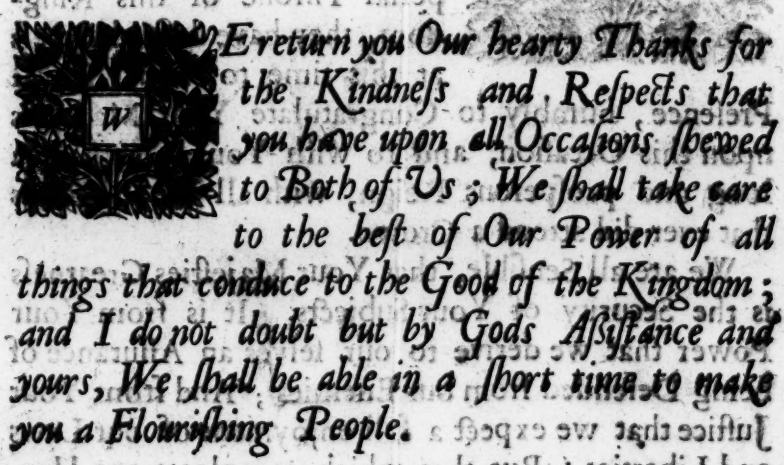 WE return you Our hearty Thanks for
the Kindneſs and Reſpects that
you have upon all Occaſions ſhewed
to Both of Us ; We ſhall take care
to the beſt of Our Power of all
things that conduce to the Good of the Kingdom ;
and I do not doubt but by Gods Aſſiſtance and
yours, We ſhall be able in a ſhort time to make
you a Flouriſhing People.